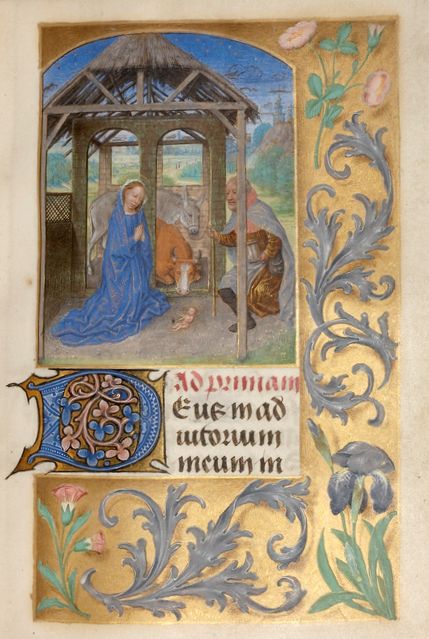 Ad primam
Deus in ad
iutorium
meum in